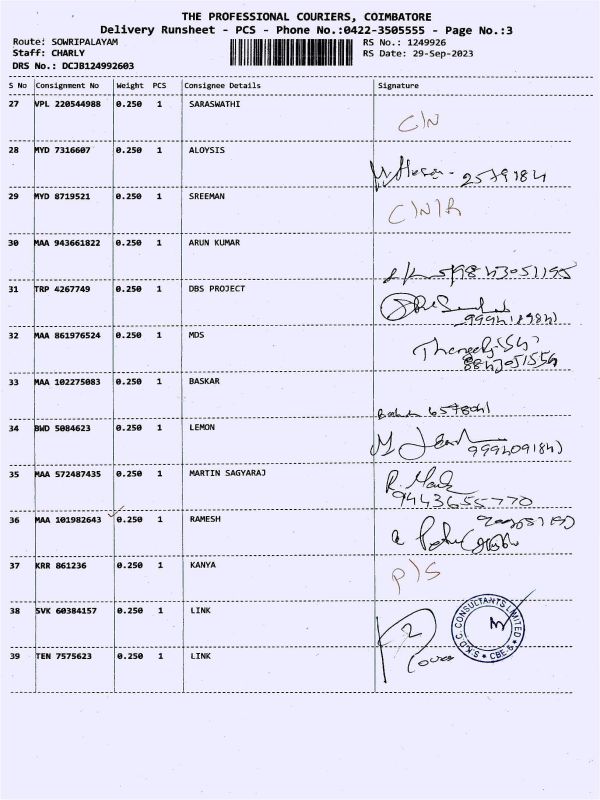 THE PROFESSIONAL COURIERS, COIMBATORE
Delivery Runsheet - PCS - Phone No.:0422-3505555 - Page No.:3
Route: SOWRIPALAYAM RS No.: 1249926
Staff: CHARLY RS Date: 29-Sep-2023
DRS No.: DCJB124992603
S No Consignment No Weight PCS Consignee Details Signature
27 VPL 220544988 0.250 1 SARASWATHI
C/N
28 MYD 7316607 0.250 1 ALOYSIS
29 MYD 8719521 0.250 1 SREEMAN
C/N/R
30 MAA 943661822 0.250 1 ARUN KUMAR
31 TRP 4267749 0.250 1 DBS PROJECT
32 MAA 861976524 0.250 1 MDS
33 MAA 102275083 0.250 1 BASKAR
34 BWD 5084623 0.250 1 LEMON
35 MAA 572487435 0.250 1 MARTIN SAGYARAJ
9443655770
36 MAA 101982643 0.250 1 RAMESH
37 KRR 861236 0.250 1 KANYA
P/S
38 SVK 60384157 0.250 1 LINK
S.K.D.C. CONSULTANTS LIMITED
CBE-6
39 TEN 7575623 0.250 1 LINK